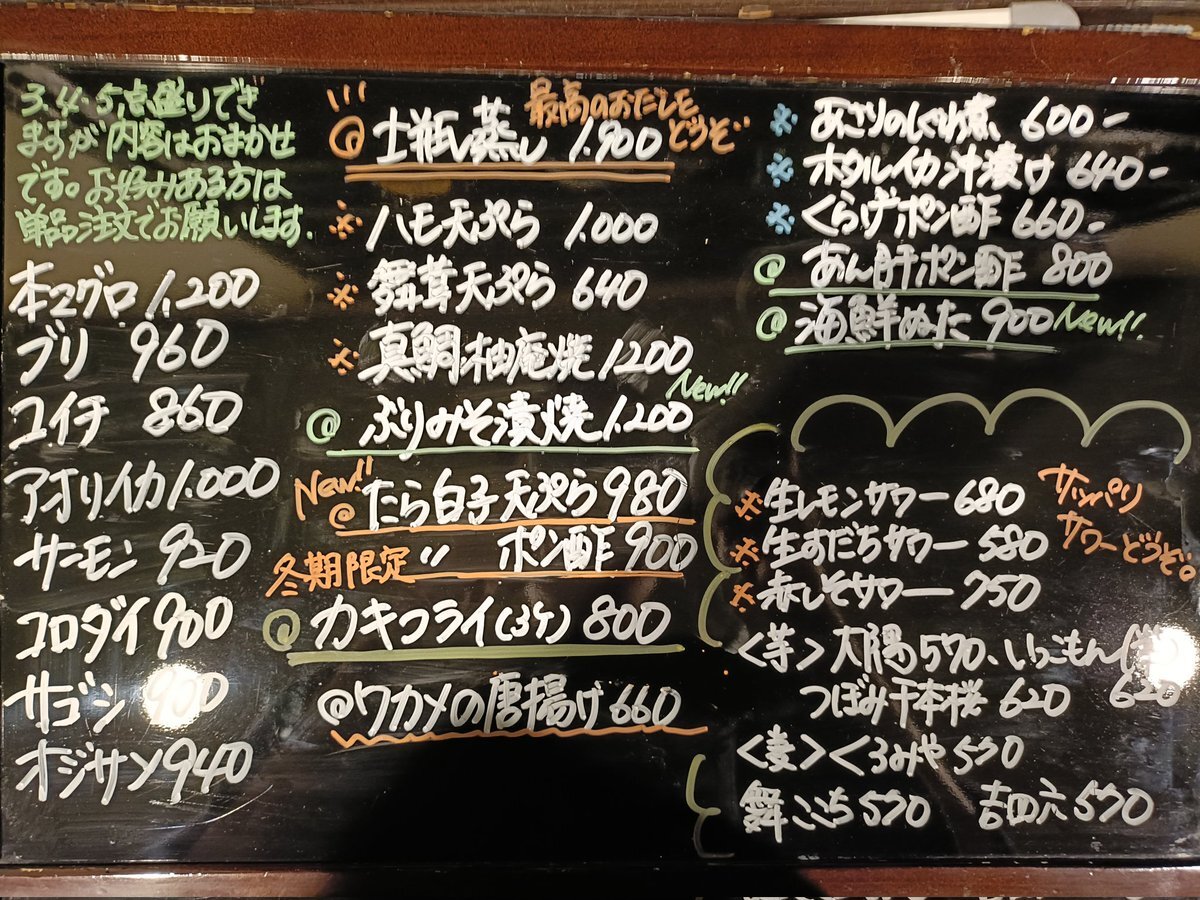 3.4.5点盛りでき
ますが内容はおまかせ
です。お好みある方は
単品注文でお願いします.
本マグロ 1,200
ブリ 960
コイチ 860
アオリイカ 1.000
サーモン 920
コロダイ 900
サゴシ 900
オジサン 940
最高のおだしを
どうぞ
@ 土瓶蒸し 1.900
※ ハモ天ぷら 1.000
※ 舞茸天ぷら 640
※ 真鯛柚庵焼 1200
New!!
@ ぶりみそ漬焼 1.200
New!!
@ たら白子天ぷら 980
冬期限定 〃 ポン酢 900
@ カキフライ(3ケ) 800
@ワカメの唐揚げ 660
※ あさりのしぐれ煮 600-
※ ホタルイカ沖漬け 640-
※ くらげポン酢 660-
@ あん肝ポン酢 800
@ 海鮮ぬた 900 New!!
※ 生レモンサワー 680
※ 生すだちサワー 580
※ 赤しそサワー 750
サッパリ
サワーどうぞ。
<芋> 大陽570、いっこもん
つぼみ千本桜 620 620
<麦> くろみや 570
舞ここち 570 吉四六 570